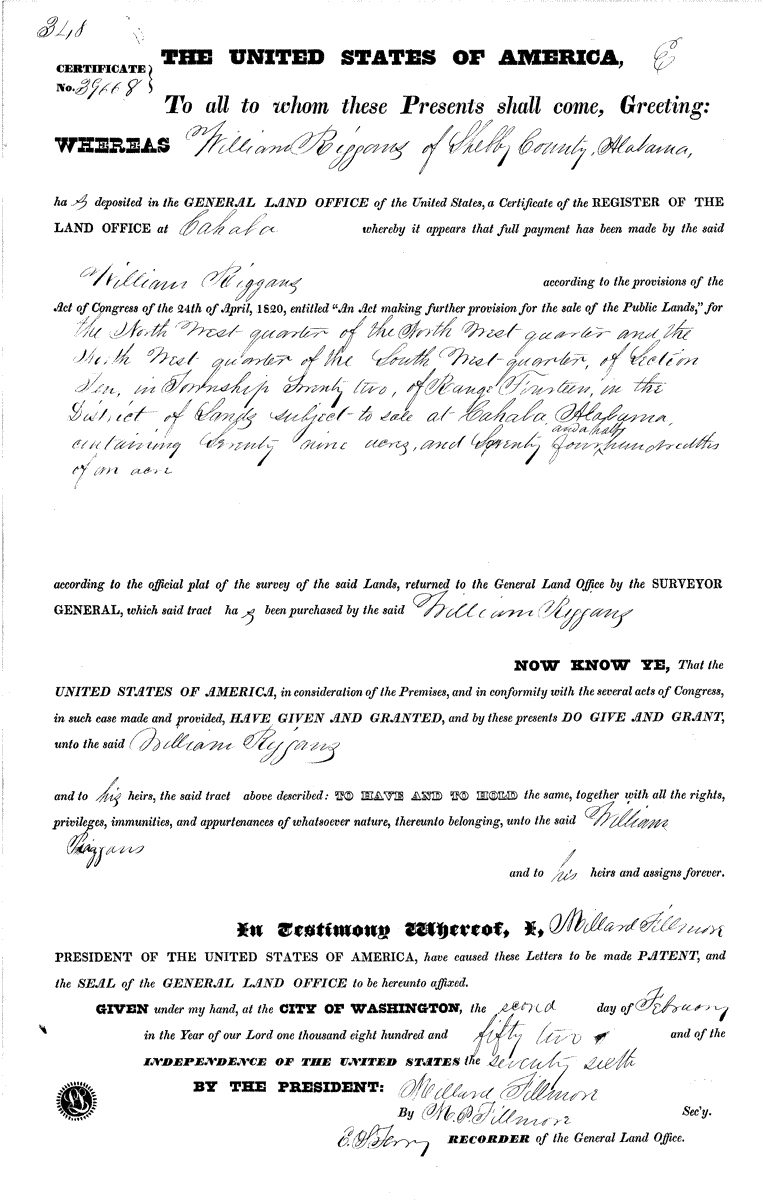 348
THE UNITED STATES OF AMERICA, E
CERTIFICATE
No. 39668
To all to whom these Presents shall come, Greeting:
WHEREAS William Riggans of Shelby County, Alabama,
ha s deposited in the GENERAL LAND OFFICE of the United States, a Certificate of the REGISTER OF THE
LAND OFFICE at Cahaba whereby it appears that full payment has been made by the said
William Riggans according to the provisions of the
Act of Congress of the 24th of April, 1820, entitled "An Act making further provision for the sale of the Public Lands," for
the North West quarter of the North West quarter and the
North West quarter of the South West quarter, of Section
Ten, in Township Twenty two, of Range Fourteen, in the
District of Lands subject to sale at Cahaba, Alabama,
containing Seventy nine acres, and Seventy four and a half hundredths
of an acre
according to the official plat of the survey of the said Lands, returned to the General Land Office by the SURVEYOR
GENERAL, which said tract ha s been purchased by the said William Riggans
NOW KNOW YE, That the
UNITED STATES OF AMERICA, in consideration of the Premises, and in conformity with the several acts of Congress,
in such case made and provided, HAVE GIVEN AND GRANTED, and by these presents DO GIVE AND GRANT,
unto the said William Riggans
and to his heirs, the said tract above described: TO HAVE AND TO HOLD the same, together with all the rights,
privileges, immunities, and appurtenances of whatsoever nature, thereunto belonging, unto the said William
Riggans
and to his heirs and assigns forever.
In Testimony Whereof, I, Millard Fillmore
PRESIDENT OF THE UNITED STATES OF AMERICA, have caused these Letters to be made PATENT, and
the SEAL of the GENERAL LAND OFFICE to be hereunto affixed.
GIVEN under my hand, at the CITY OF WASHINGTON, the second day of February
in the Year of our Lord one thousand eight hundred and fifty two and of the
INDEPENDENCE OF THE UNITED STATES the seventy sixth
BY THE PRESIDENT: Millard Fillmore
By M. P. Fillmore Sec'y.
E. S. Terry RECORDER of the General Land Office.